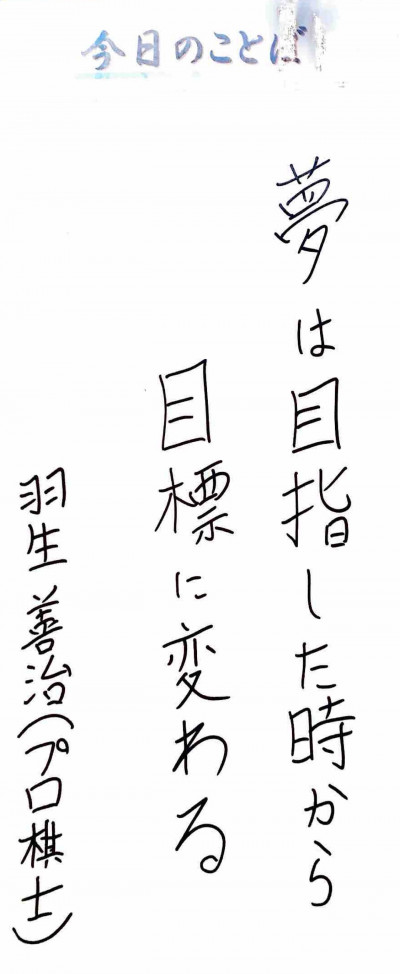 今日のことば
夢は目指した時から
目標に変わる
羽生善治(プロ棋士)